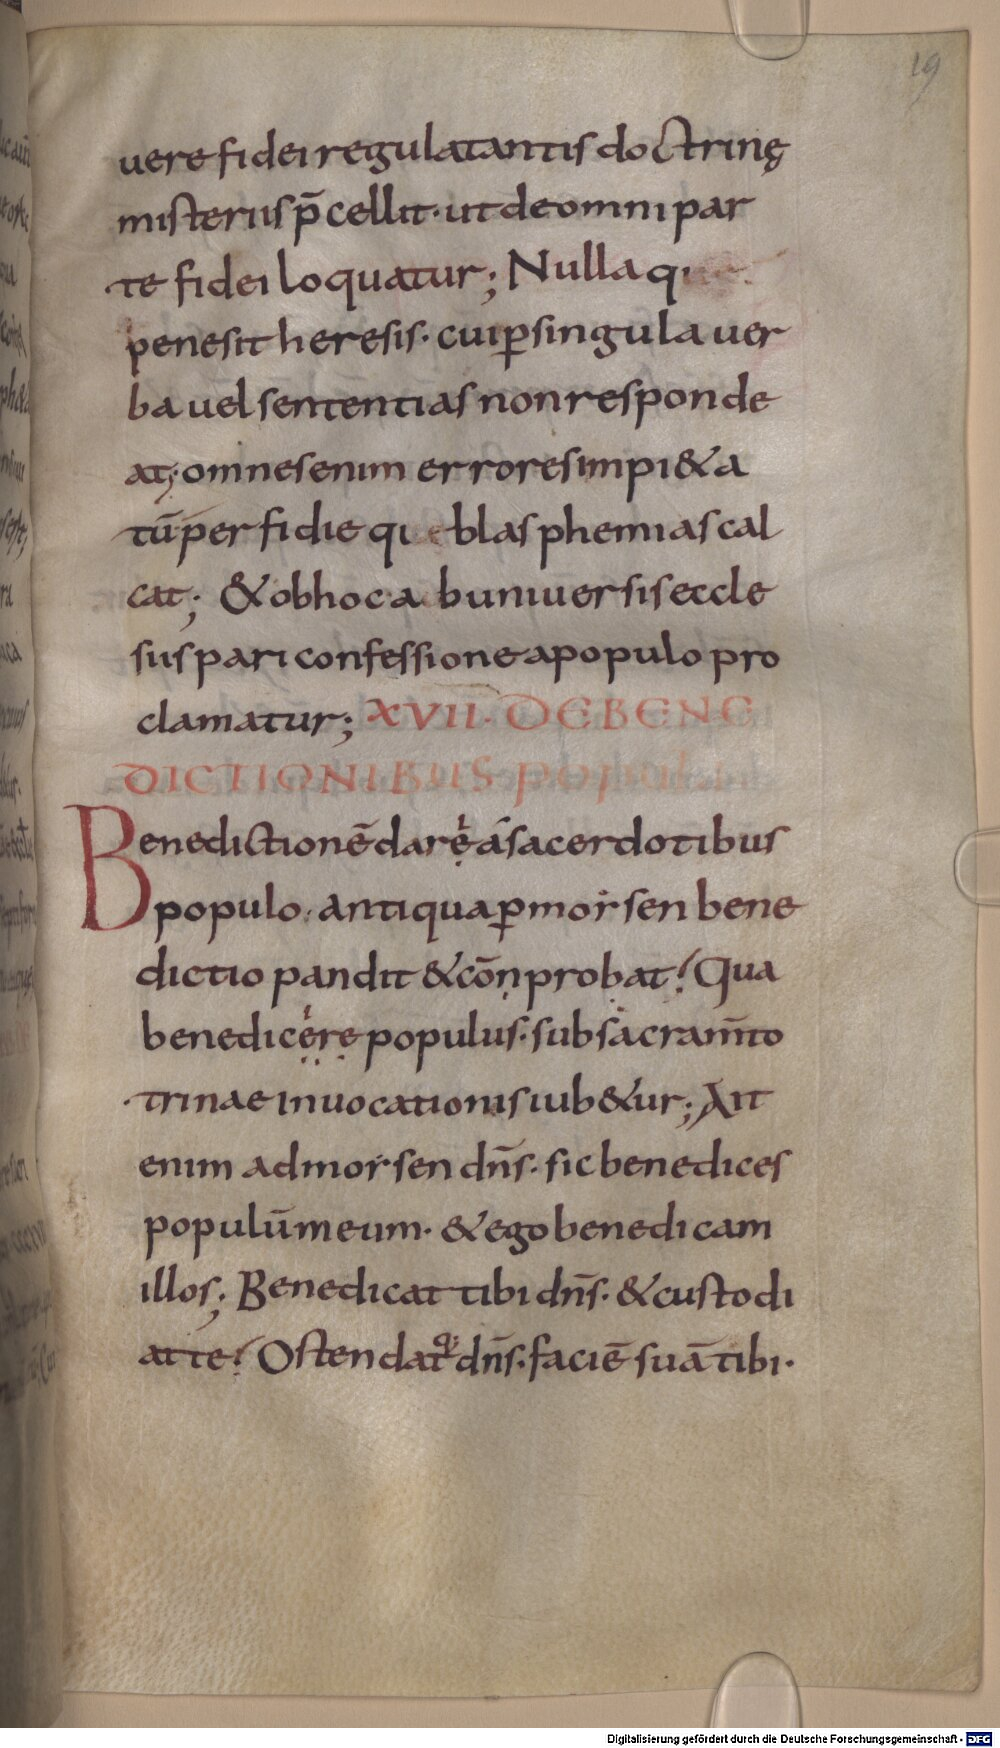 19
uere fidei regula tantis doctrinę
misteriis p̄cellit· ut de omni par
te fidei loquatur; Nulla q
pene sit heresis· cui ꝑ singula uer
ba uel sententias non responde
at; omnes enim errores impi&a
tū perfidie que blasphemias cal
cat; & ob hoc ab uniuersis eccle
siis pari confessione a populo pro
clamatur; XVII· DE BENE
DICTIONIBUS POPULI
Benedictionē dare á sacerdotibus
populo· antiqua ꝑ morsen bene
dictio pandit & cōnprobat; Qua
benedicere populus· sub sacram̄to
trinae inuocationis iub&ur; Ait
enim ad morsen dn̄s· sic benedices
populūmeum· & ego benedicam
illos; Benedicat tibi dn̄s· & custodi
at te; Ostendatq; dn̄s· faciē suā tibi·
Digitalisierung gefördert durch die Deutsche Forschungsgemeinschaft - DFG